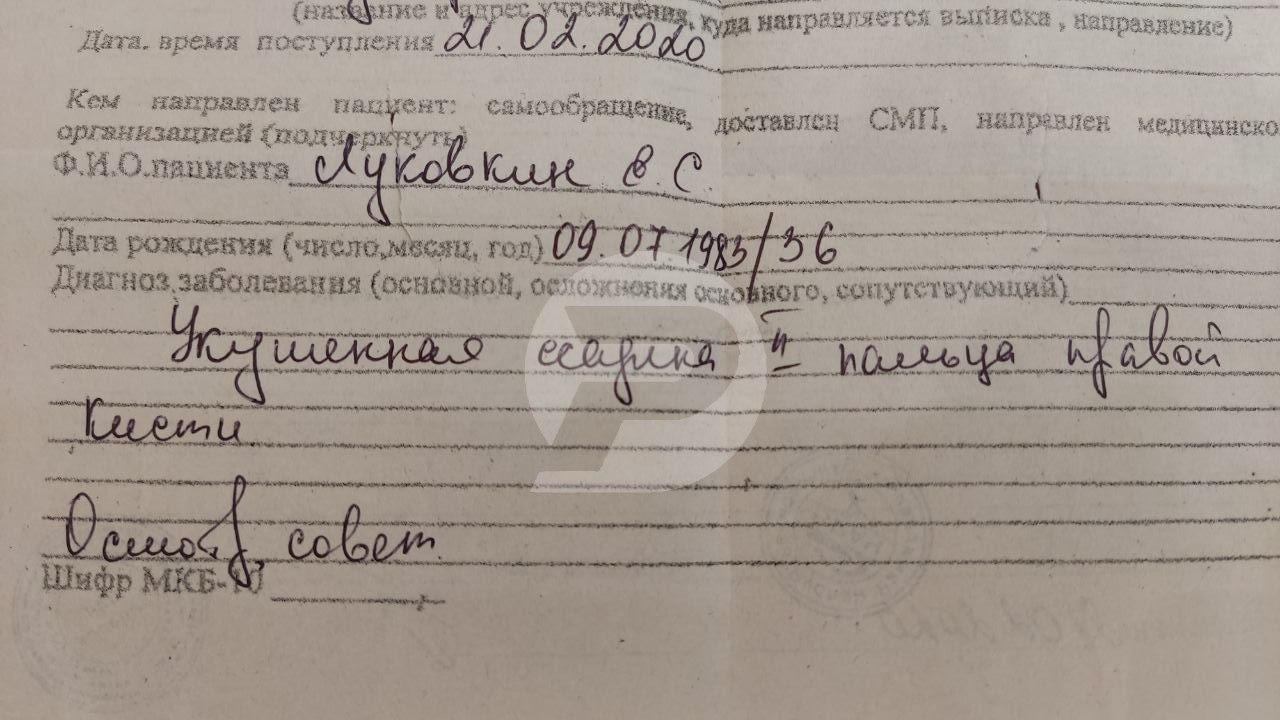 (название и адрес учреждения, куда направляется выписка , направление)
Дата. время поступления 21. 02. 2020
Кем направлен пациент: самообращение, доставлен СМП, направлен медицинско
организацией (подчеркнуть)
Ф.И.О.пациента Луковкин В. С.
Дата рождения (число,месяц, год) 09. 07 1983/36
Диагноз заболевания (основной, осложнения основного, сопутствующий)
Укушенная ссадина II пальца правой
кисти.
Осмотр, совет.
Шифр МКБ-10